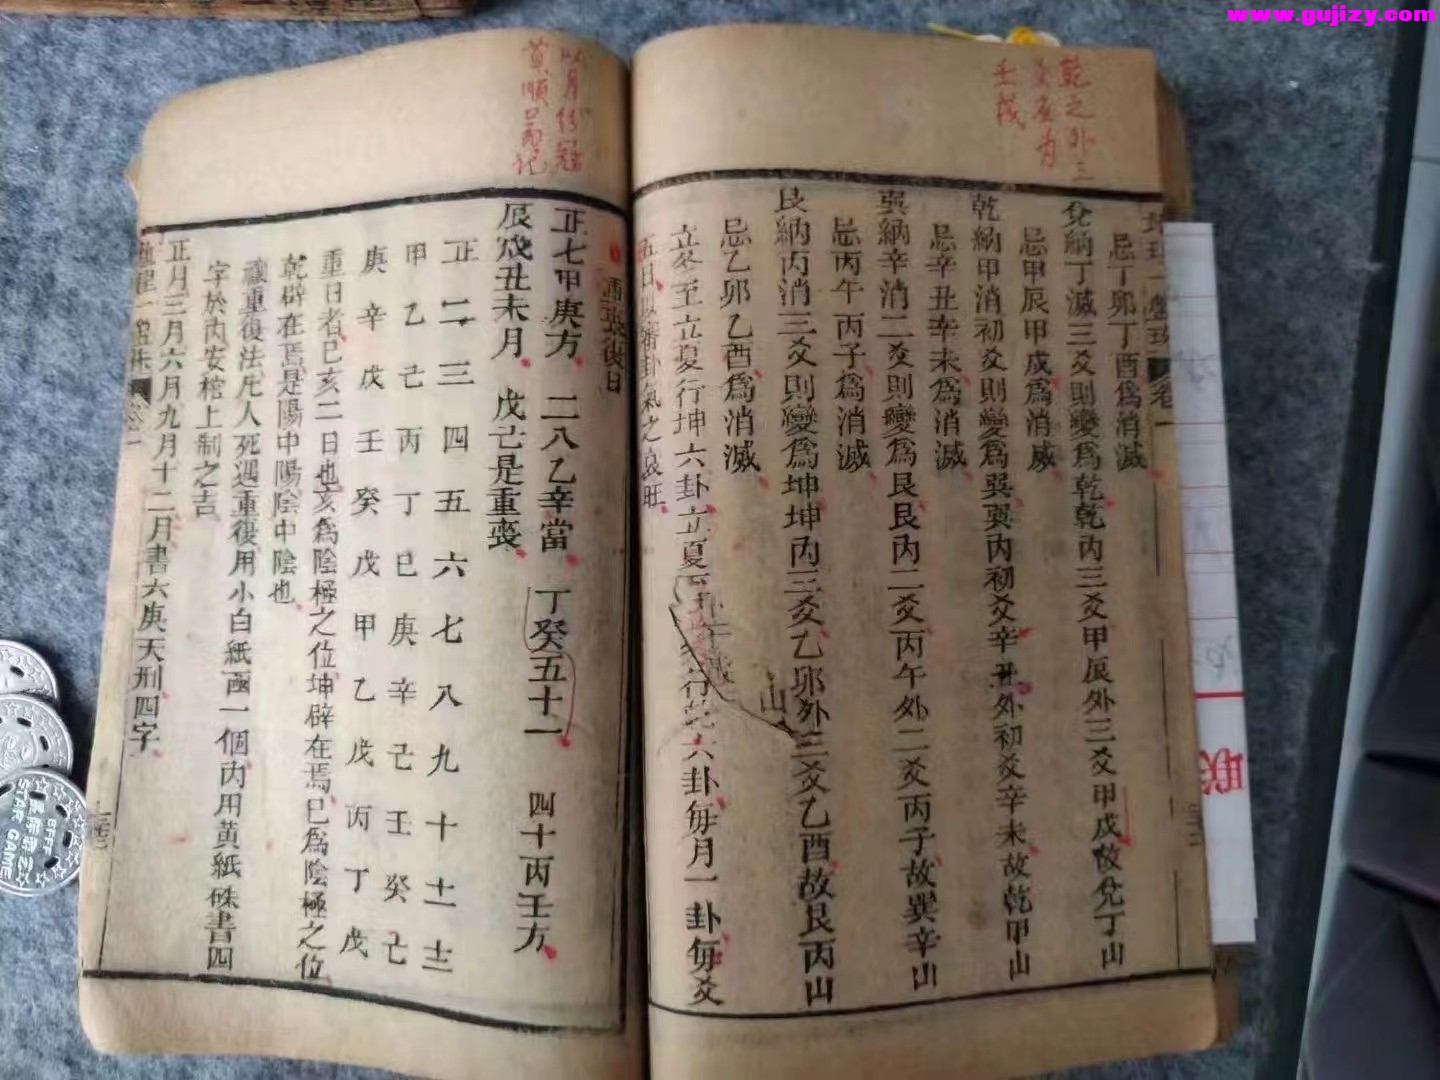 www.gujizy.com
乾之外三
爻在为
壬戌
忌丁卯丁酉為消滅
兌納丁滅三爻則變為乾乾內三爻甲辰外三爻甲戌故兌丁山
忌甲辰甲戌為消滅
乾納甲消初爻則變為巽巽內初爻辛丑外初爻辛未故乾甲山
忌辛丑辛未為消滅
巽納辛消二爻則變為艮艮內二爻丙午外二爻丙子故巽辛山
忌丙午丙子為消滅
艮納丙消三爻則變為坤坤內三爻乙卯外三爻乙酉故艮丙山
忌乙卯乙酉為消滅
立冬至立夏行坤六卦立夏至 行乾六卦每月一卦每爻
五日 審卦氣之衰旺
以月份冠
黄順 記
重喪復日
正七甲庚方 二八乙辛當 丁癸五十一 四十丙壬方
辰戌丑未月 戊己是重喪
正二三四五六七八九十十一十二
甲乙己丙丁巳庚辛己壬癸己
庚辛戊壬癸戊甲乙戊丙丁戊
重日者巳亥二日也亥為陰極之位坤辟在焉巳為陰極之位
乾辟在焉是陽中陽陰中陰也
禳重復法凡人死遇重復用小白紙函一個內用黃紙硃書四
字於內安棺上制之吉
正月三月六月九月十二月書六庚天刑四字